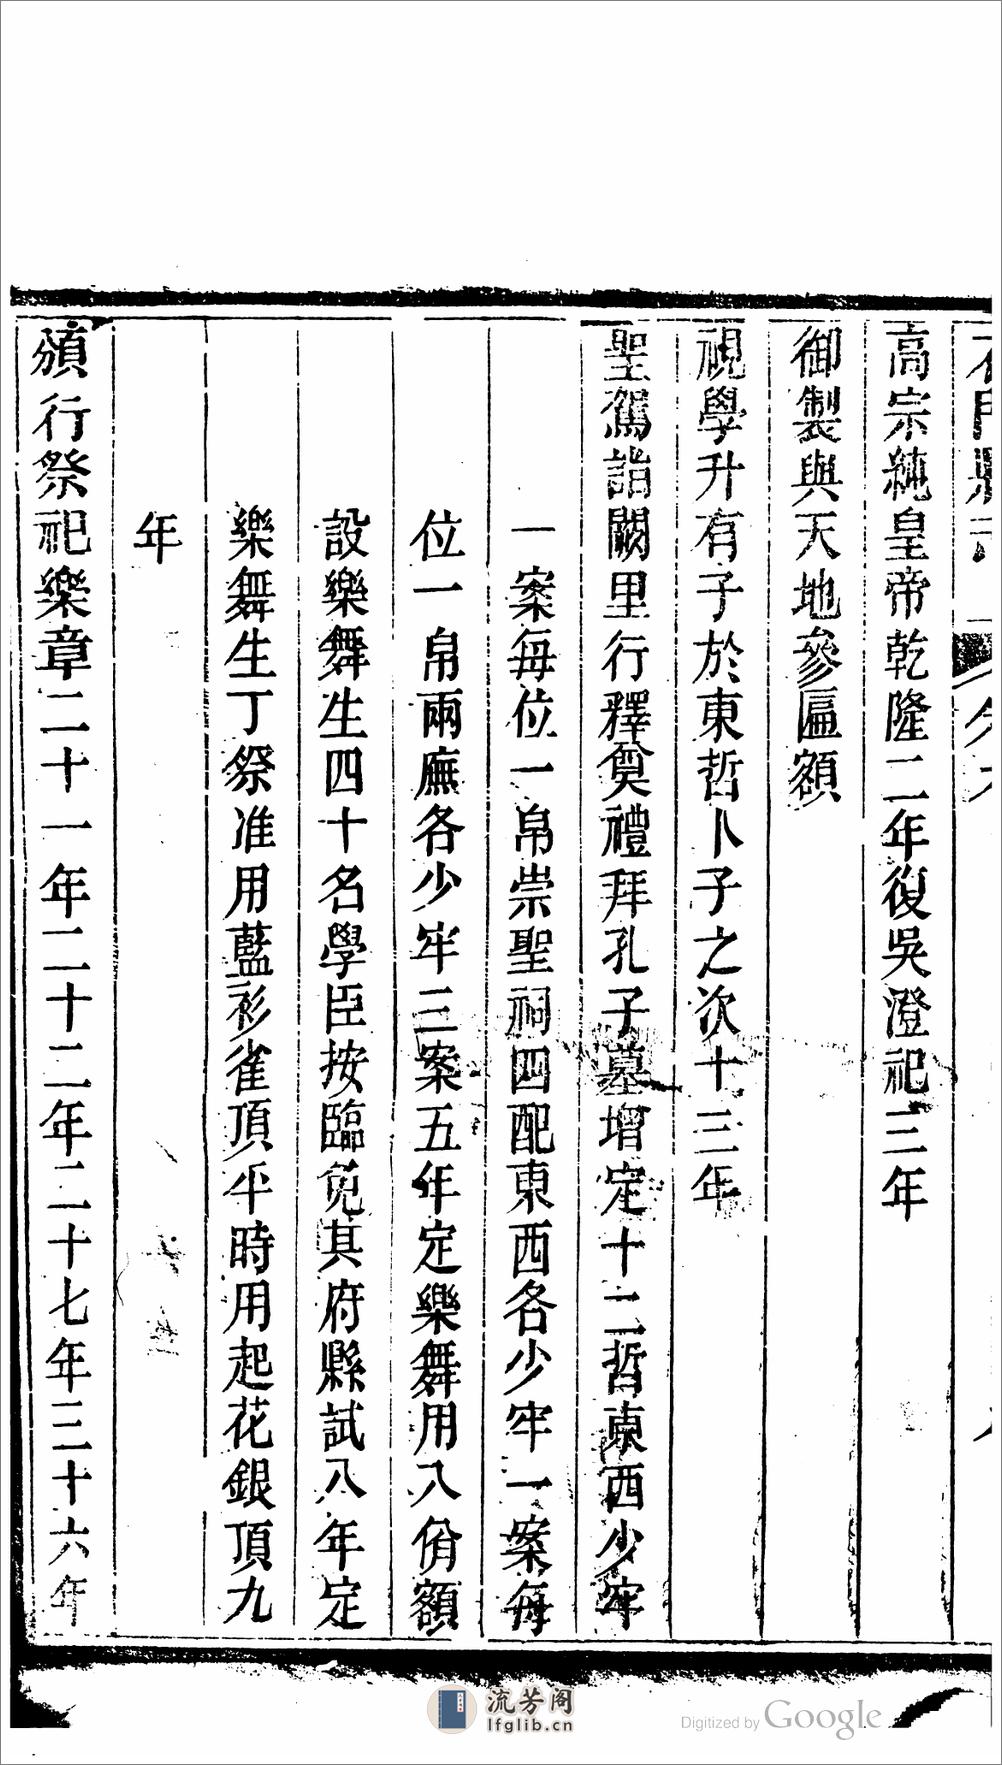 高宗純皇帝乾隆二年復吳澄祀三年
御製與天地參匾額
視學升有子於東哲卜子之次十三年
聖駕詣闕里行釋奠禮拜孔子墓增定十二哲東西少牢
一案每位一帛崇聖祠四配東西各少牢一案每
位一帛兩廡各少牢三案五年定樂舞用八佾額
設樂舞生四十名學臣按臨免其府縣試八年定
樂舞生丁祭准用藍衫雀頂平時用起花銀頂九
年
頒行祭祀樂章二十一年二十二年二十七年三十六年
流芳阁
lfglib.cn
Digitized by Google